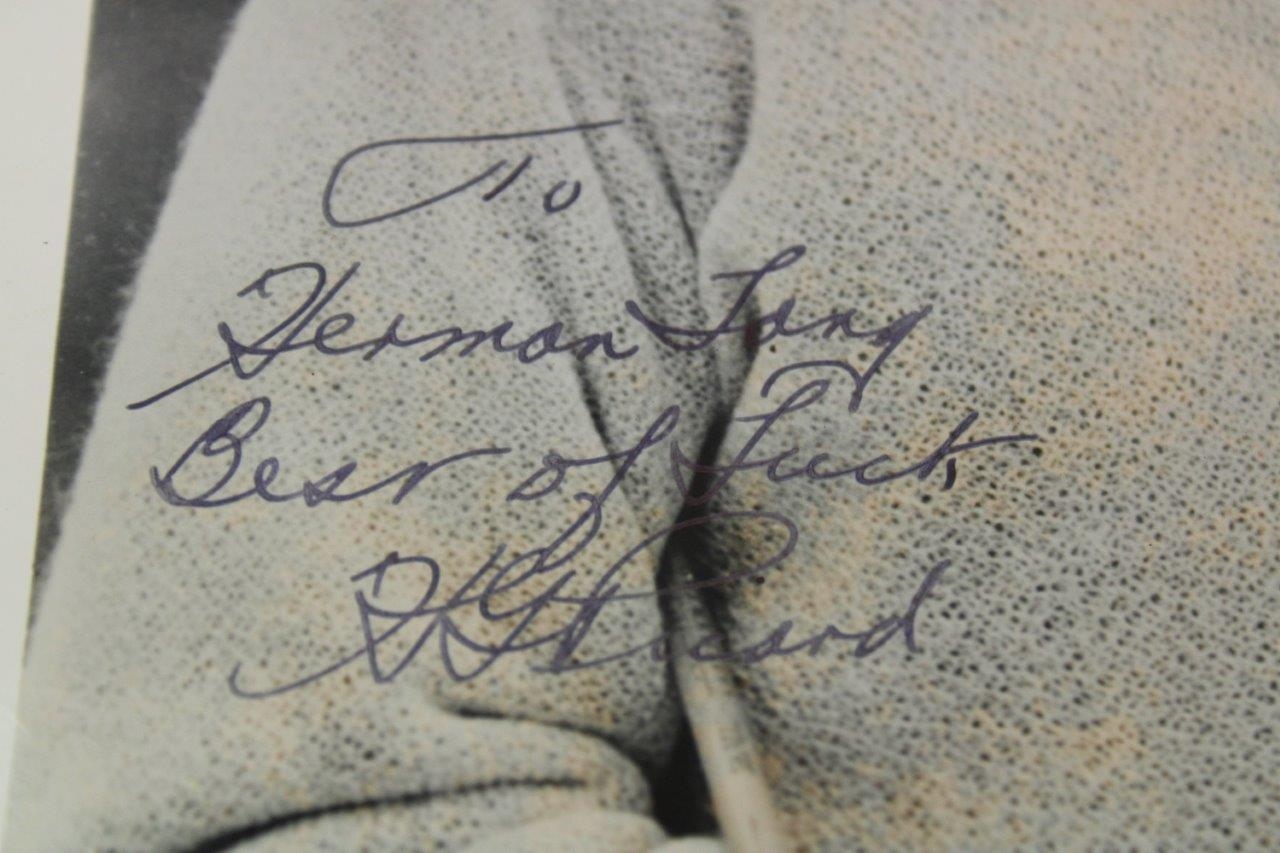 To
Herman Long
Best of Luck
H. G. Picard